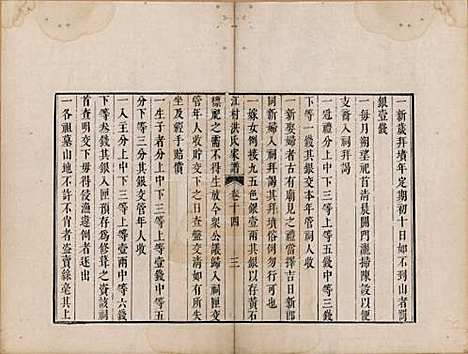 一新歲拜墳年定期初十日如不到山者罰
銀壹錢
一每月朔望祀首清晨開門灑掃陳設以便
支裔入祠拜謁
一冠禮分上中下三等上等五錢中等三錢
下等一錢其銀交本年管年人收
一新娶婦者古有廟見之禮當擇吉日新郎
同新婦入祠拜謁其拜墳俗例勿行可也
一嫁女例接九五色銀壹兩其銀以存黃石
江村洪氏家譜 卷十四 三
標祀之需不得生放今眾公議歸入祠匣交
管年人收貯交下首查盤明白如有所失
坐及經手賠償
一生子者分上中下三等上等壹兩中等五
分下等三錢其銀交管年人收
一入主分上中下三等上等壹兩中等六錢
下等叁錢其銀入匣存爲修葺之資該祠
首查明交下毋得侵漁違例者逐出
一各祖墓山地不許不肖者盜賣緣毫其上